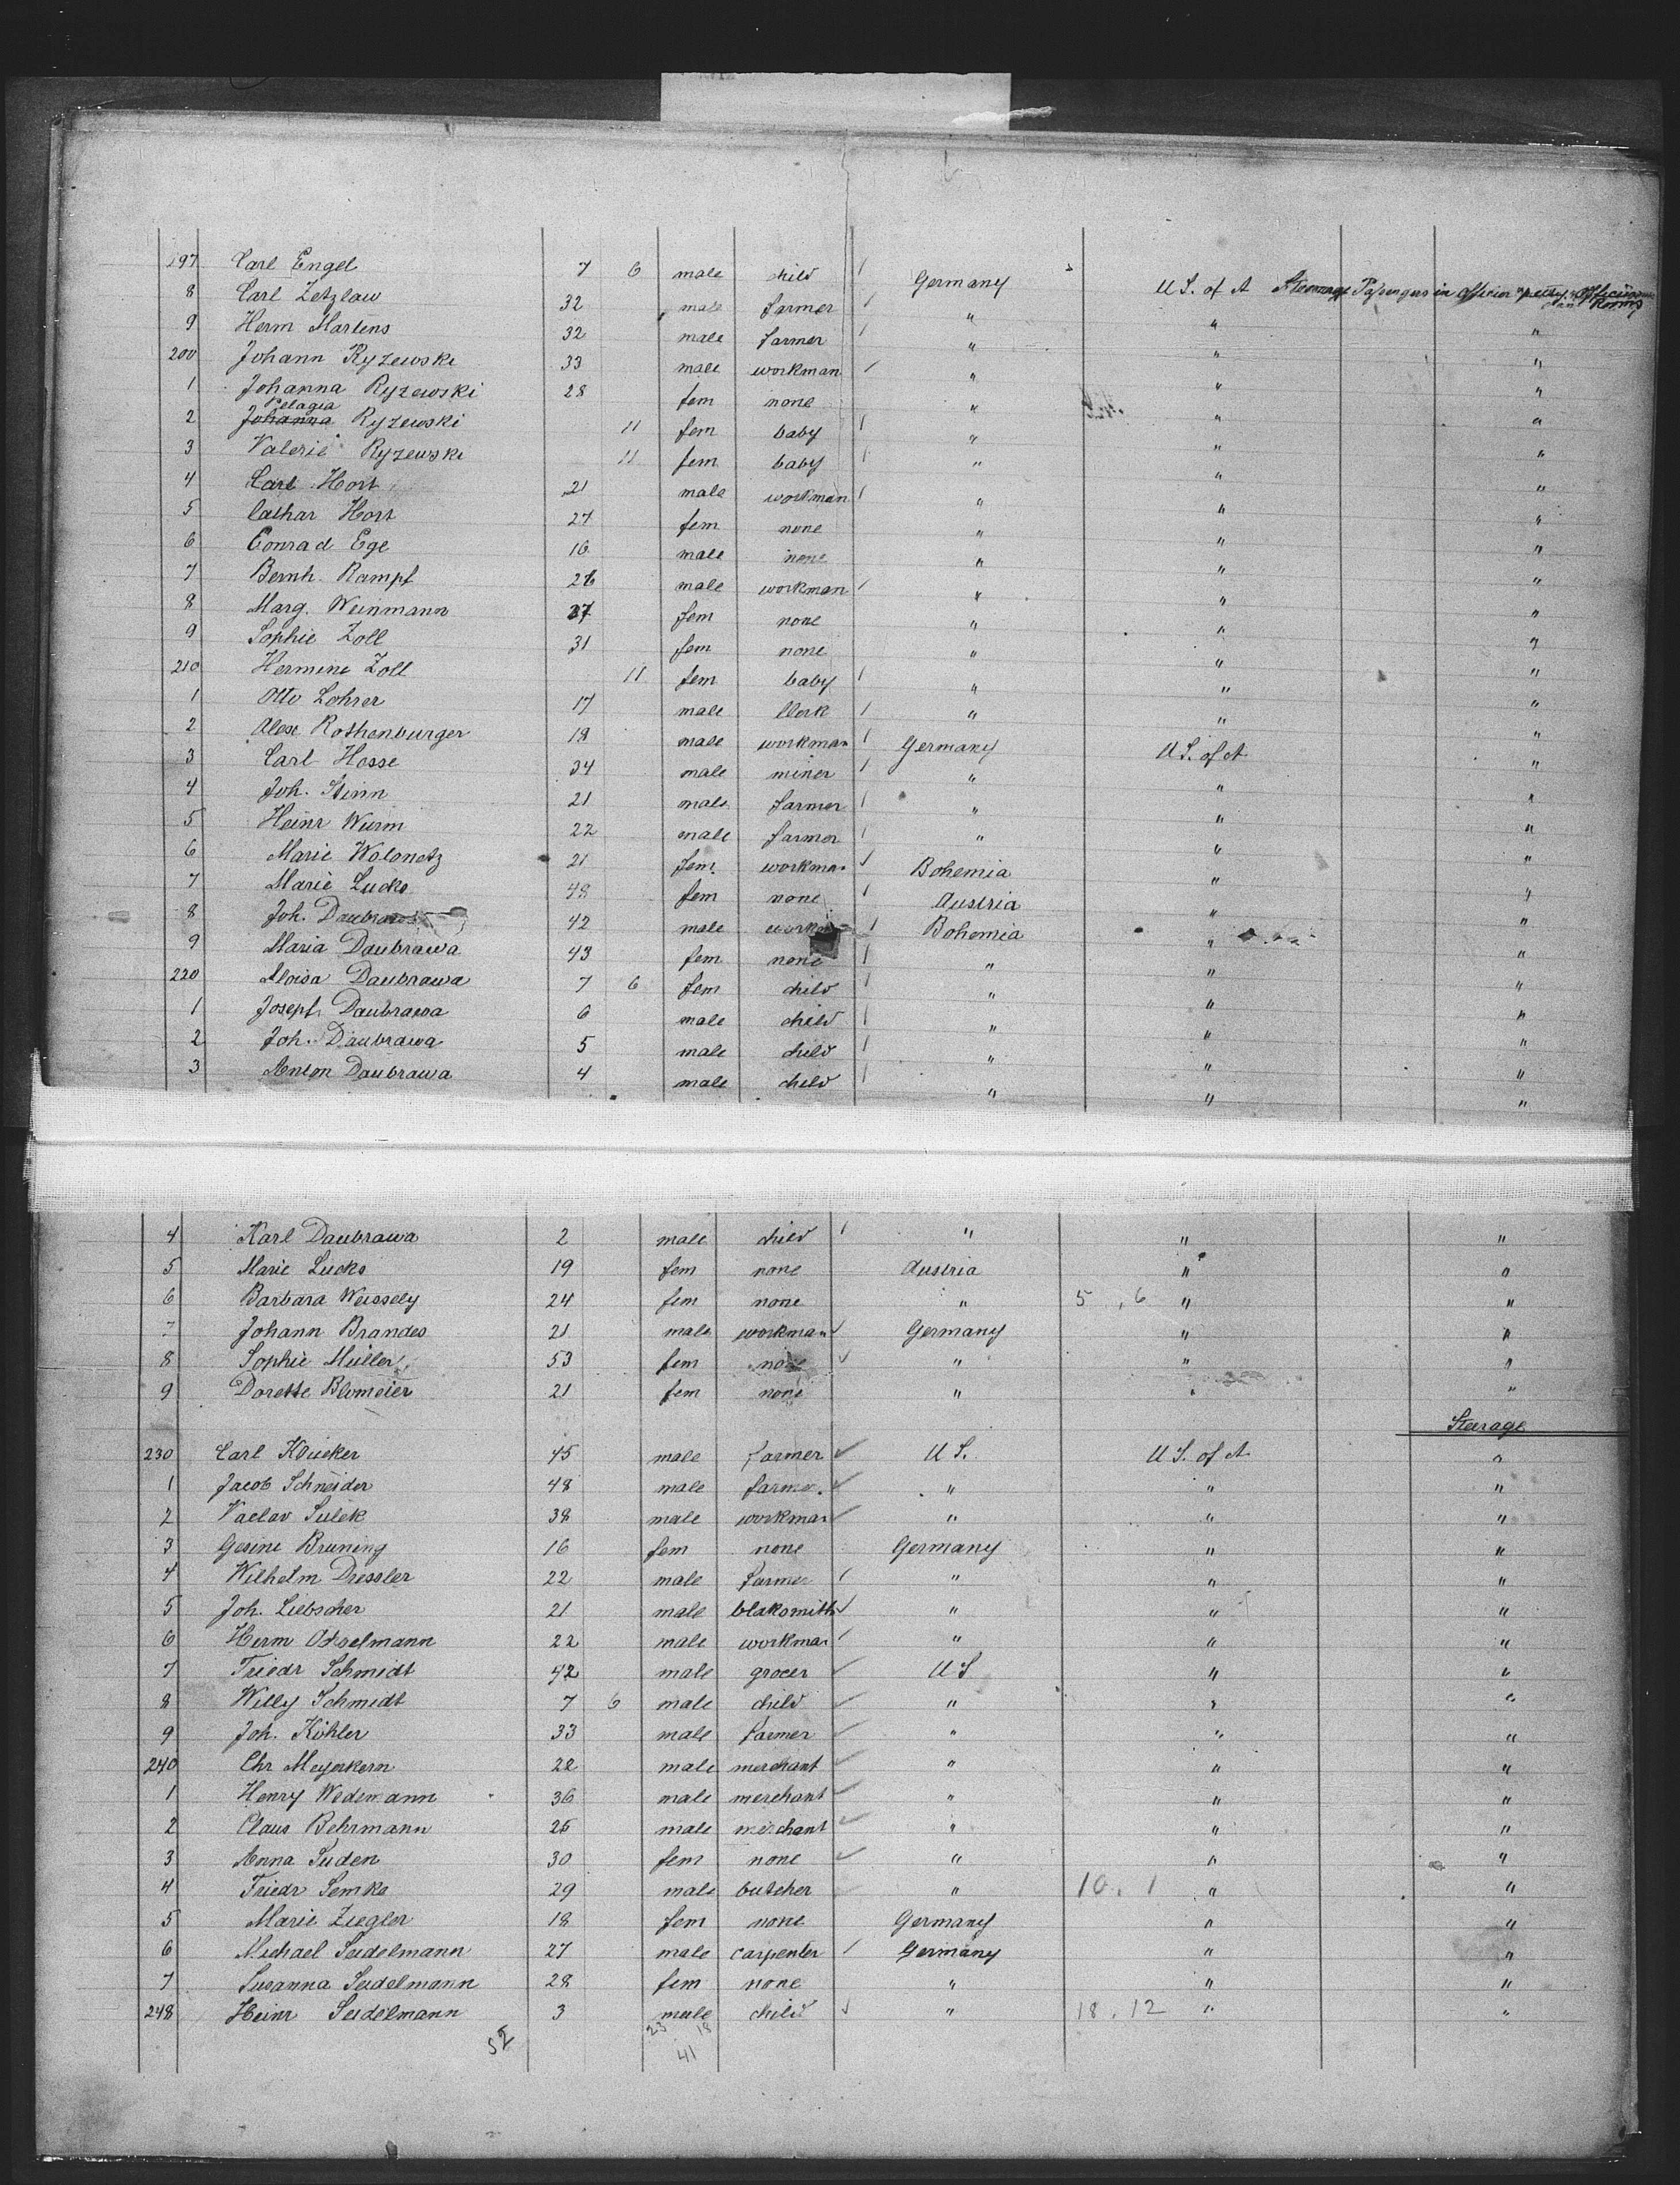 197 Carl Engel 7 6 male child / Germany U S. of A Steerage Passengers in officer & petty officers Rooms
8 Carl Zetzlaw 32 male farmer / " " "
9 Herm Martens 32 male farmer / " " "
200 Johann Ryzewski 33 male workman / " " "
1 Johanna Ryzewski 28 fem none " " "
2 Pelagia Ryzewski 11 fem baby / " " "
3 Valerie Ryzewski 11 fem baby / " " "
4 Carl Hort 21 male workman / " " "
5 Cathar Hort 27 fem none " " "
6 Conrad Ege 16 male none " " "
7 Bernh. Rampf 26 male workman / " " "
8 Marg. Weinmann 27 fem none " " "
9 Sophie Zoll 31 fem none " " "
210 Hermine Zoll 11 fem baby / " " "
1 Otto Lohrer 17 male Clerk / " " "
2 Alex Rothenburger 18 male workman / Germany U S. of A "
3 Carl Hosse 34 male miner / " " "
4 Joh. Stinn 21 male farmer / " " "
5 Heinr Wurm 22 male farmer / " " "
6 Marie Wolonetz 21 fem. workman / Bohemia " "
7 Marie Lucko 48 fem none / Austria " "
8 Joh. Daubrawa 42 male / Bohemia " "
9 Maria Daubrawa 43 fem none / " " "
220 Aloisa Daubrawa 7 6 fem child / " " "
1 Joseph Daubrawa 6 male child / " " "
2 Joh. Daubrawa 5 male child / " " "
3 Anton Daubrawa 4 male child / " " "
4 Karl Daubrawa 2 male child / " " "
5 Marie Lucko 19 fem none Austria " "
6 Barbara Weissely 24 fem none " 5 , 6 " "
7 Johann Brandes 21 male workman / Germany " "
8 Sophie Müller 53 fem none " " "
9 Dorette Blomeier 21 fem none " " "
Steerage
230 Carl Klücker 45 male farmer U S. U S. of A "
1 Jacob Schneider 48 male farmer " " "
2 Vaclav Sulek 38 male workman " " "
3 Gesine Bruning 16 fem none Germany " "
4 Wilhelm Dressler 22 male farmer / " " "
5 Joh. Liebscher 21 male blaksmith " " "
6 Herm 22 male workman / " " "
7 Friedr Schmidt 42 male grocer U S " "
8 Willy Schmidt 7 6 male child " " "
9 Joh. Köhler 33 male farmer " " "
240 Chr Meyerkorn 22 male merchant " " "
1 Henry Wedemann 36 male merchant " " "
2 Claus Behrmann 25 male merchant " " "
3 Anna Suden 30 fem none " " "
4 Friedr Lemke 29 male butcher " 10 . 1 " "
5 Marie Ziegler 18 fem none Germany " "
6 Michael Seidelmann 27 male carpenter / Germany " "
7 Susanna Seidelmann 28 fem none " " "
248 Heinr Seidelmann 3 male child " 18 . 12 " "
52 23 18
41